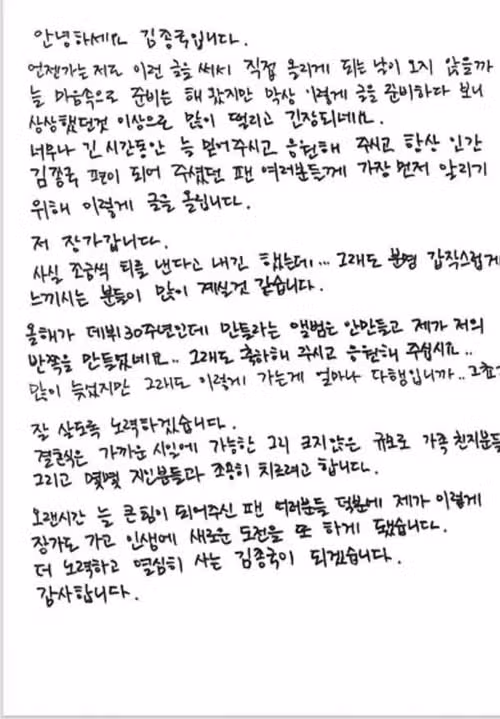 안녕하세요 김종국입니다.
언젠가는 저도 이런 글을 써서 직접 올리게 되는 날이 오지 않을까
늘 마음속으로 준비는 해 왔지만 막상 이렇게 글을 준비하다 보니
상상했던것 이상으로 많이 떨리고 긴장되네요.
너무나 긴 시간동안 늘 믿어주시고 응원해 주시고 항상 인간
김종국 편이 되어 주셨던 팬 여러분들께 가장 먼저 알리기
위해 이렇게 글을 올립니다.
저 장가갑니다.
사실 조금씩 티를 낸다고 내긴 했는데... 그래도 분명 갑작스럽게
느끼시는 분들이 많이 계실것 같습니다.
올해가 데뷔 30주년인데 만들라는 앨범은 안만들고 제가 저의
반쪽을 만들었네요.. 그래도 축하해 주시고 응원해 주십시요..
많이 늦었지만 그래도 이렇게 가는게 얼마나 다행입니까..
잘 살도록 노력하겠습니다.
결혼식은 가까운 시일에 가능한 그리 크지않은 규모로 가족 친지분들
그리고 몇몇 지인분들과 조용히 치르려고 합니다.
오랜시간 늘 큰힘이 되어주신 팬 여러분들 덕분에 제가 이렇게
장가도 가고 인생에 새로운 도전을 또 하게 됐습니다.
더 노력하고 열심히 사는 김종국이 되겠습니다.
감사합니다.